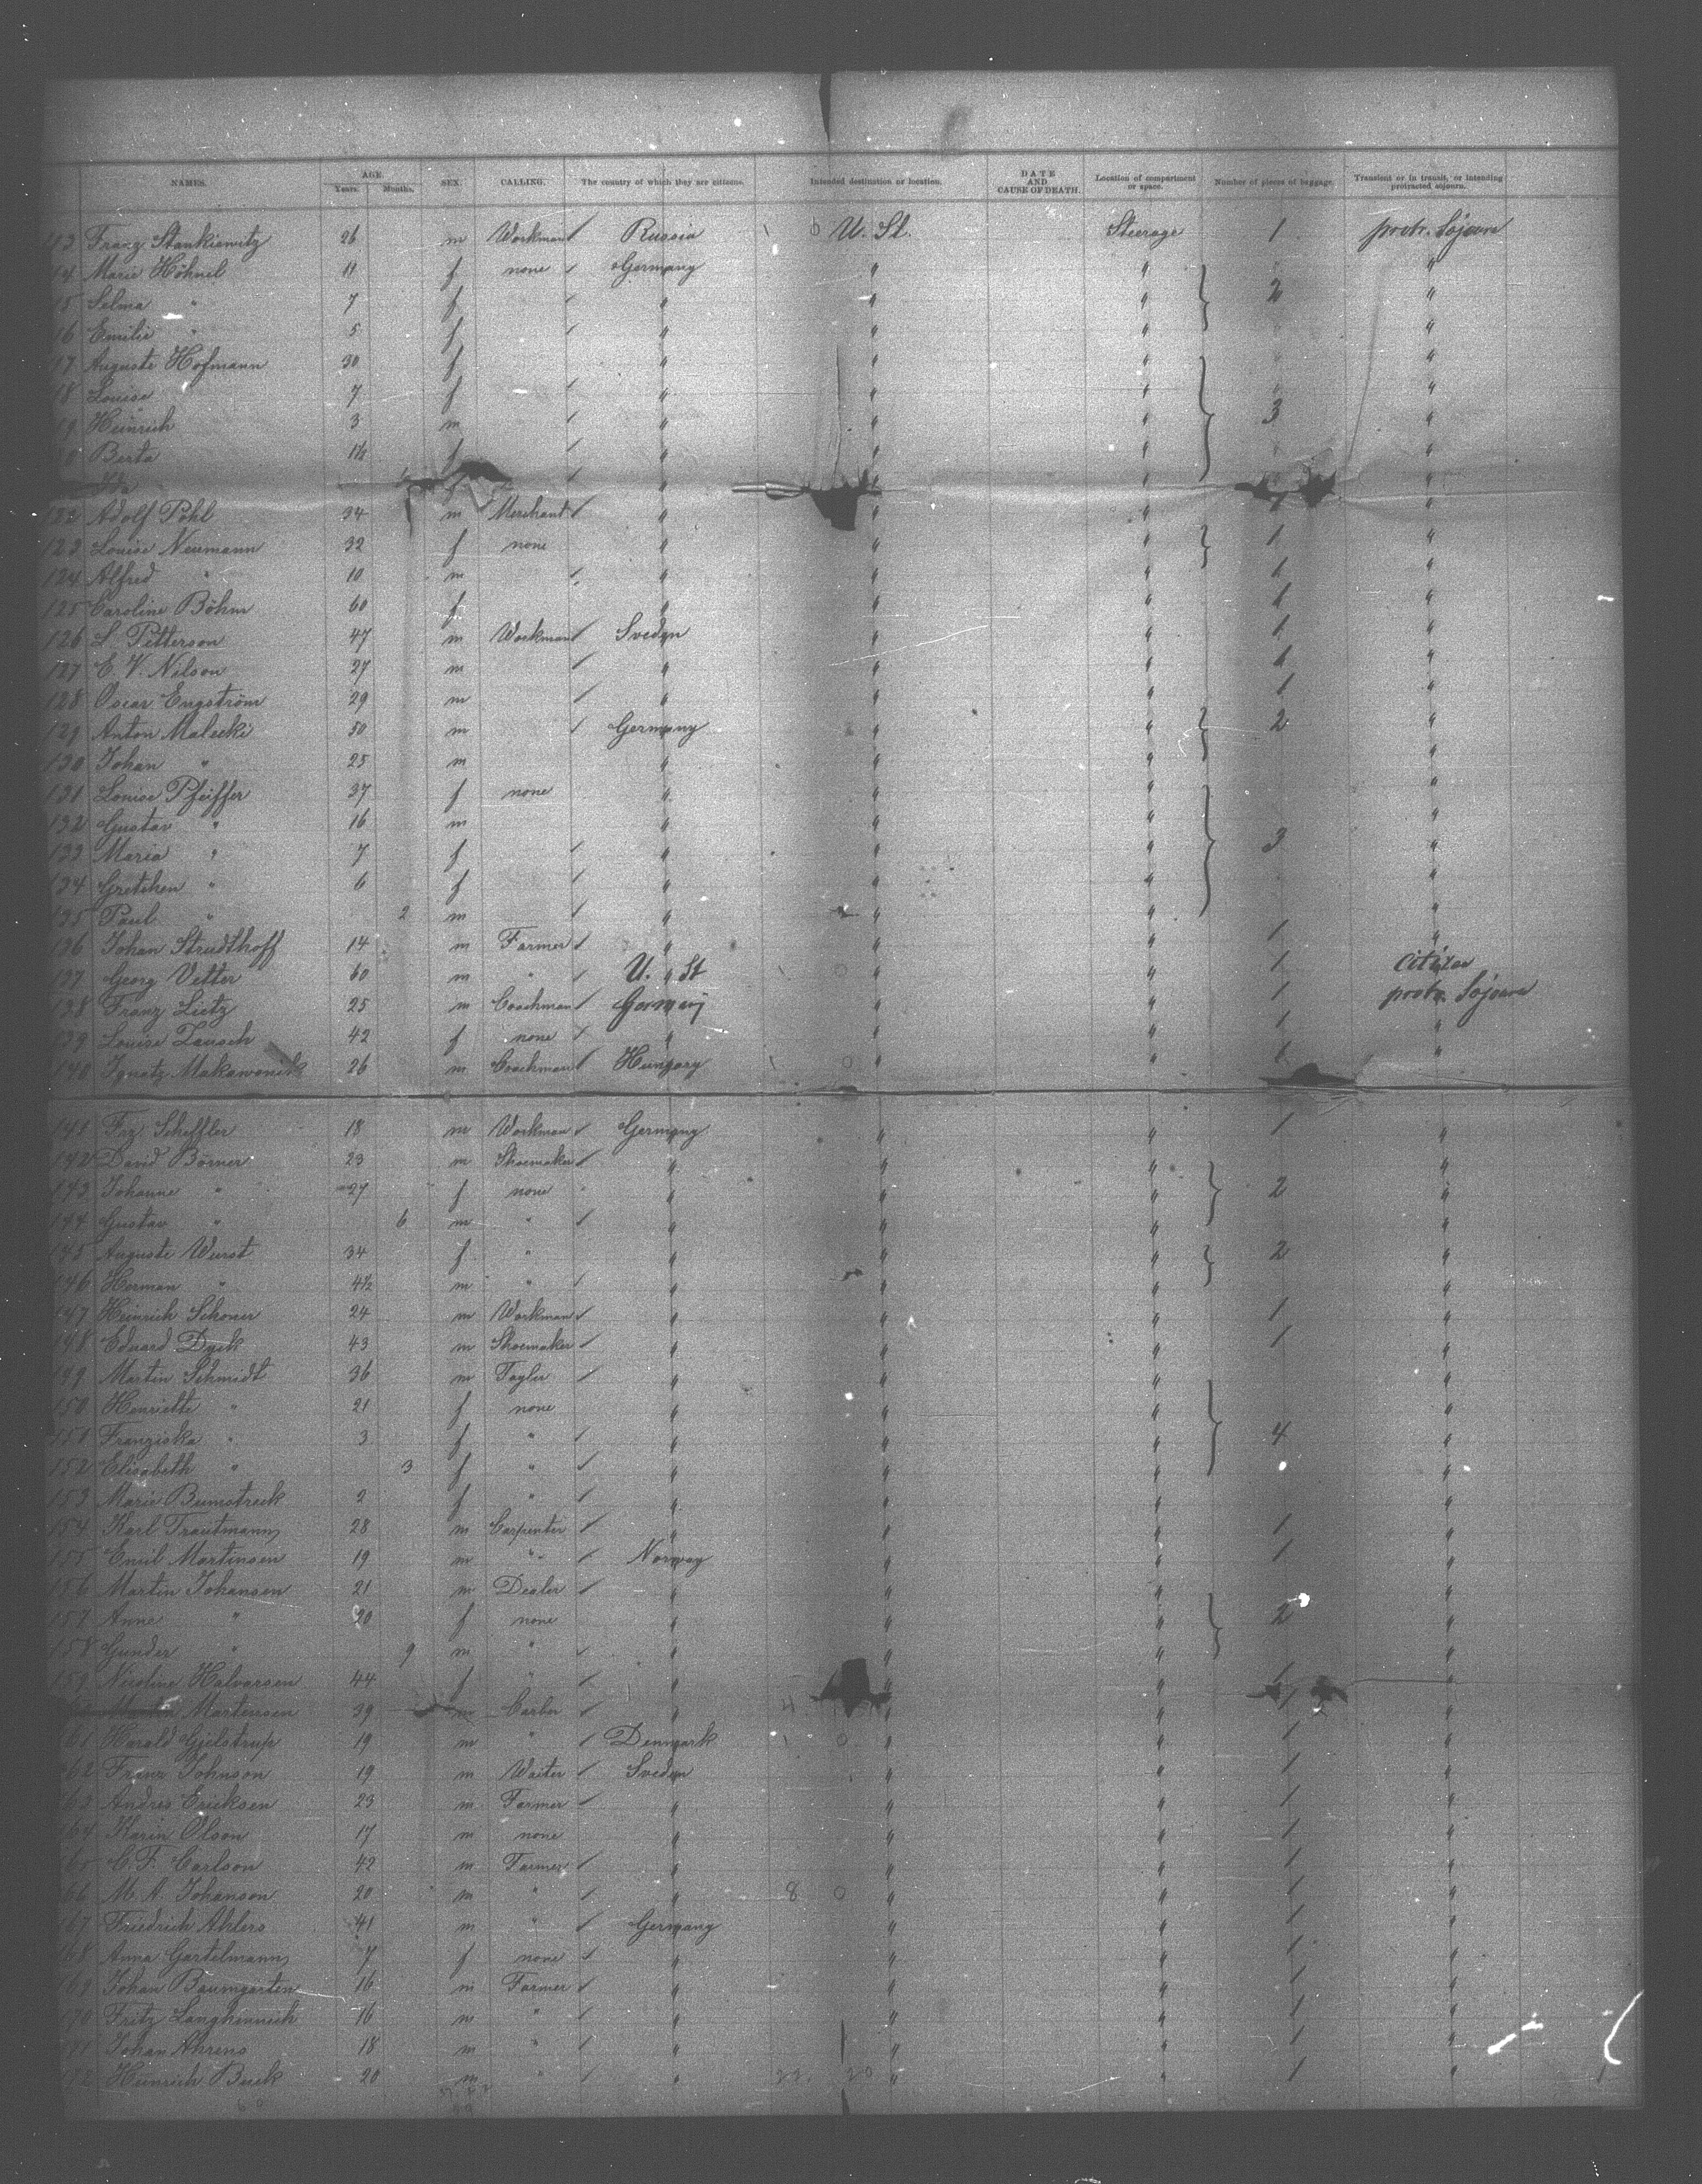 NAMES. AGE. Years. Months. SEX. CALLING. The country of which they are citizens. Intended destination or location. DATE AND CAUSE OF DEATH. Location of compartment or space. Number of pieces of baggage. Transient or in transit, or intending protracted sojourn.
13 Franz Stankiewitz 26 m Workman Russia U. St. Steerage 1 protr. Sojourn
14 Marie Höhnel 11 f none Germany " " "
15 Selma " 7 f " " " 2 "
16 Emilie " 5 f " " " "
17 Auguste Hofmann 30 f " " " "
18 Louise 7 f " " " "
19 Heinrich " 3 m " " " 3 "
Berta 1½ f " " " "
Ida " " " "
122 Adolf Pohl 34 m Merchant " " " 1 "
123 Louise Neumann 32 f none " " " 1 "
124 Alfred " 10 m " " " 1 "
125 Caroline Böhm 60 f " " " 1 "
126 L. Petterson 47 m Workman Sveden " " 1 "
127 C. V. Nilson 27 m " " " 1 "
128 Oscar Engström 29 m " " " 1 "
129 Anton Malecki 50 m Germany " " 2 "
130 Johan " 25 m " " " "
131 Louise Pfeiffer 37 f none " " " "
132 Gustav " 16 m " " " "
133 Maria " 7 f " " " 3 "
134 Gretchen " 6 f " " " "
135 Paul " 2 m " " " "
136 Johan Strudthoff 14 m Farmer " " " 1 "
137 Georg Vetter 60 m " U. St " " 1 citizen
138 Franz Lietz 25 m Coachman Germany " " 1 protr. Sojourn
139 Louise Lausch 42 f none " " " 1 "
140 Ignatz Makawonick 26 m Coachman Hungary " " 1 "
141 Frz Scheffler 18 m Workman Germany " " 1 "
142 David Börner 23 m Shoemaker " " " "
143 Johanne " 27 f none " " " 2 "
144 Gustav " 6 m " " " " "
145 Auguste Wurst 34 f " " " " 2 "
146 Herman " 4½ m " " " " "
147 Heinrich Schoner 24 m Workman " " " 1 "
148 Eduard Dyck 43 m Shoemaker " " " 1 "
149 Martin Schmidt 36 m Taylor " " " "
150 Henriette " 21 f none " " " "
151 Franziska " 3 f " " " " 4 "
152 Elisabeth " 3 f " " " " "
153 Marie Bumstreck 2 f " " " " "
154 Karl Trautmann 28 m Carpenter " " " 1 "
155 Emil Martinsen 19 m " Norway " " 1 "
156 Martin Johansen 21 m Dealer " " " "
157 Anne " 20 f none " " " 2 "
158 Gunder " 9 m " " " " "
159 Nicoline Halvorsen 44 f " " " " 1 "
Martensen 39 m " " " 1 "
161 Harald Gjelstrup 19 m " Denmark " " 1 "
162 Franz Johnson 19 m Waiter Sveden " " 1 "
163 Andres Ericksen 23 m Farmer " " " 1 "
164 Karin Olson 17 m none " " " 1 "
165 C. F. Carlson 42 m Farmer " " " 1 "
166 M. A. Johanson 20 m " " 8 0 " " 1 "
167 Friedrich Ahlers 41 m " Germany " " 1 "
168 Anna Gartelmann 7 f none " " " 1 "
169 Johan Baumgarten 16 m Farmer " " " 1 "
170 Fritz Langhinrich 16 m " " " " 1 "
171 Johan Ahrens 18 m " " " " 1 "
172 Heinrich Buck 20 m " " " " 1 "